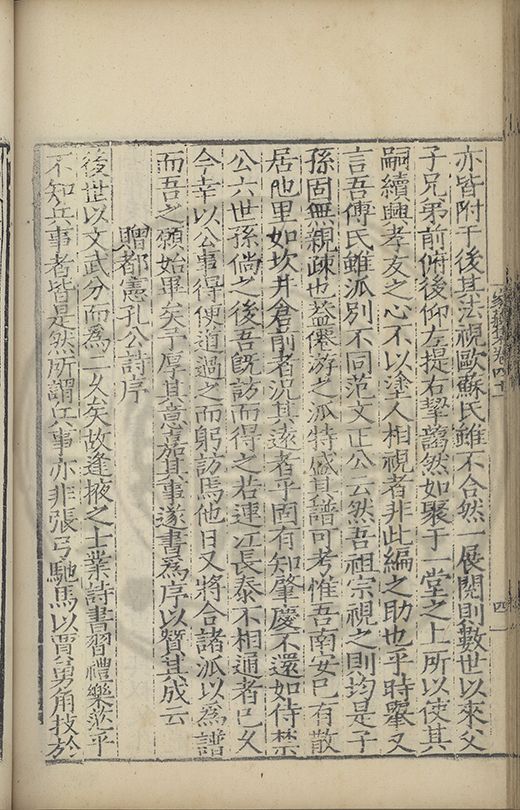 亦皆附于後其法視歐蘇氏雖不合然一展閱則數世以來父
子兄弟前俯後仰左提右挈藹然如聚于一堂之上所以使其
嗣續興孝友之心不以塗人相視者非此編之助也乎時舉又
言吾傅氏雖派別不同范文正公云然吾祖宗視之則均是子
孫固無親疎也蓋僊游之派特盛其譜可考惟吾南安已有散
居他里如坎井倉前者況其遠者乎固有知肇慶不還如侍禁
公六世孫倘之後吾旣訪而得之若連江長泰不相通者已久
今幸以公事得便道過之而躬訪焉他日又將合諸派以為譜
而吾之願始畢矣予厚其意嘉其事遂書為序以贊其成云
贈都憲孔公詩序
後世以文武分而為二久矣故逢掖之士業詩書習禮樂茫乎
不知兵事者皆是然所謂兵事亦非張弓馳馬以賈勇角技於
家藏集卷四十二
四